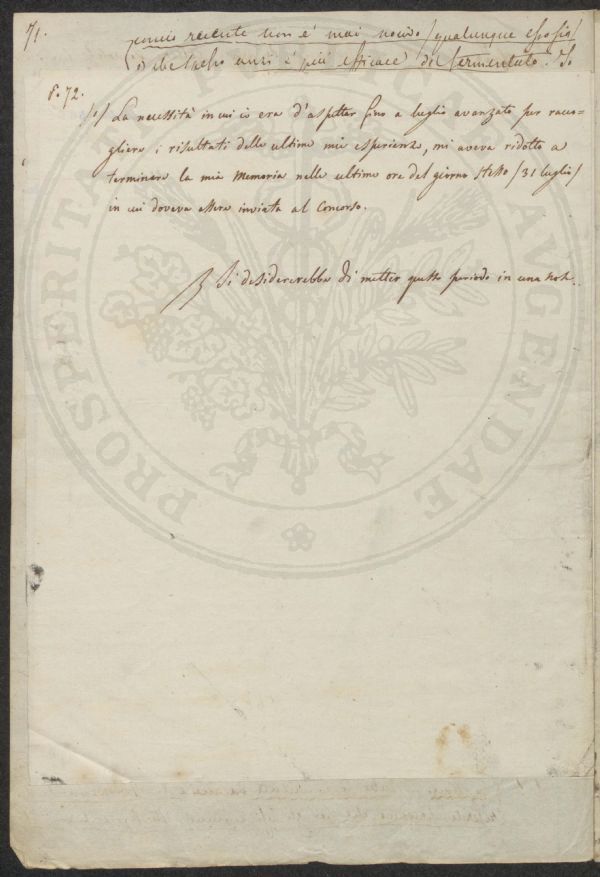 71.
concio recente non è mai nocivo /qualunque
che anzi è più efficace del fermentato. Io
P. 72.
/1/ La necessità in cui io era d'aspettar fino a luglio avanzato per racco=
gliere i risultati delle ultime mie esperienze, mi aveva ridotto a
terminare la mia Memoria nelle ultime ore del giorno stesso /31 luglio/
in cui doveva essere inviata al Concorso.
Si desidererebbe di metter questo periodo in una not..
PROSPERITATI PUBLICAE AUGENDAE